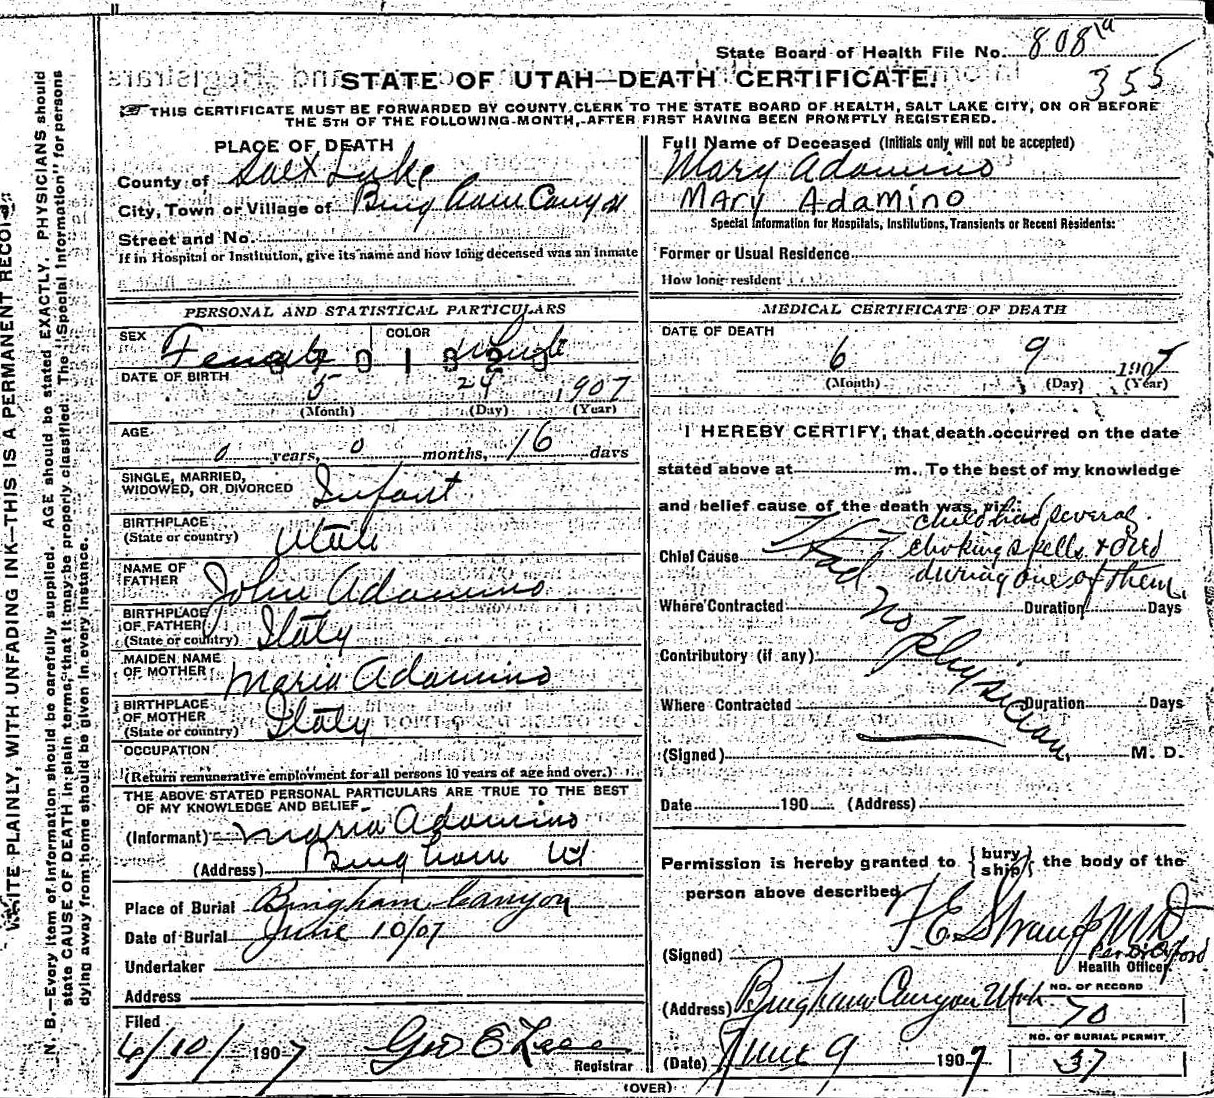 State Board of Health File No. 808 1a
355
STATE OF UTAH—DEATH CERTIFICATE.
THIS CERTIFICATE MUST BE FORWARDED BY COUNTY CLERK TO THE STATE BOARD OF HEALTH, SALT LAKE CITY, ON OR BEFORE
THE 5TH OF THE FOLLOWING MONTH, AFTER FIRST HAVING BEEN PROMPTLY REGISTERED.
WRITE PLAINLY, WITH UNFADING INK—THIS IS A PERMANENT RECORD.
N. B.—Every item of information should be carefully supplied. AGE should be stated EXACTLY. PHYSICIANS should
state CAUSE OF DEATH in plain terms, that it may be properly classified. The "Special Information" for persons
dying away from home should be given in every instance.
PLACE OF DEATH
County of Salt Lake
City, Town or Village of Bingham Canyon
Street and No.
If in Hospital or Institution, give its name and how long deceased was an inmate
PERSONAL AND STATISTICAL PARTICULARS
SEX Female COLOR
DATE OF BIRTH 5 24 1907
(Month) (Day) (Year)
AGE
0 years, 0 months, 16 days
SINGLE, MARRIED,
WIDOWED, OR DIVORCED Infant
BIRTHPLACE
(State or country) Utah
NAME OF
FATHER John Adamino
BIRTHPLACE
OF FATHER
(State or country) Italy
MAIDEN NAME
OF MOTHER Maria Adamino
BIRTHPLACE
OF MOTHER
(State or country) Italy
OCCUPATION
(Return remunerative employment for all persons 10 years of age and over.)
THE ABOVE STATED PERSONAL PARTICULARS ARE TRUE TO THE BEST
OF MY KNOWLEDGE AND BELIEF
(Informant) Maria Adamino
(Address) Bingham Ut
Place of Burial Bingham Canyon
Date of Burial June 10/07
Undertaker
Address
Filed
6/10/ 1907 Geo E Lee
Registrar
Full Name of Deceased (Initials only will not be accepted)
Mary Adamino
Mary Adamino
Special Information for Hospitals, Institutions, Transients or Recent Residents:
Former or Usual Residence
How long resident
MEDICAL CERTIFICATE OF DEATH
DATE OF DEATH
6 9 1907
(Month) (Day) (Year)
I HEREBY CERTIFY, that death occurred on the date
stated above at m. To the best of my knowledge
and belief cause of the death was, viz.:
child had several
Chief Cause Had choking spells & died
during one of them.
Where Contracted Duration Days
no physician
Contributory (if any)
Where Contracted Duration Days
(Signed) M. D.
Date 190 (Address)
Permission is hereby granted to {bury ship} the body of the
person above described.
(Signed) F. E. Straup MD
Health Officer
(Address) Bingham Canyon Utah
NO. OF RECORD
70
NO. OF BURIAL PERMIT
37
(Date) June 9 1907
(OVER)